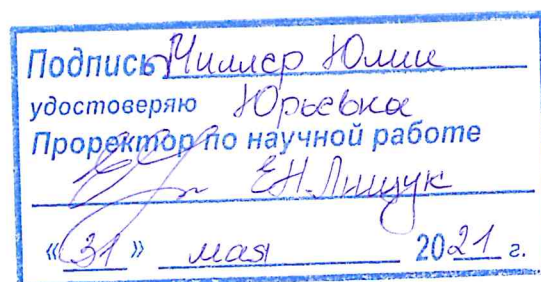 Подпись Чиллер Юлии
удостоверяю Юрьевна
Проректор по научной работе
Е.Н. Лищук
«31» мая 2021 г.